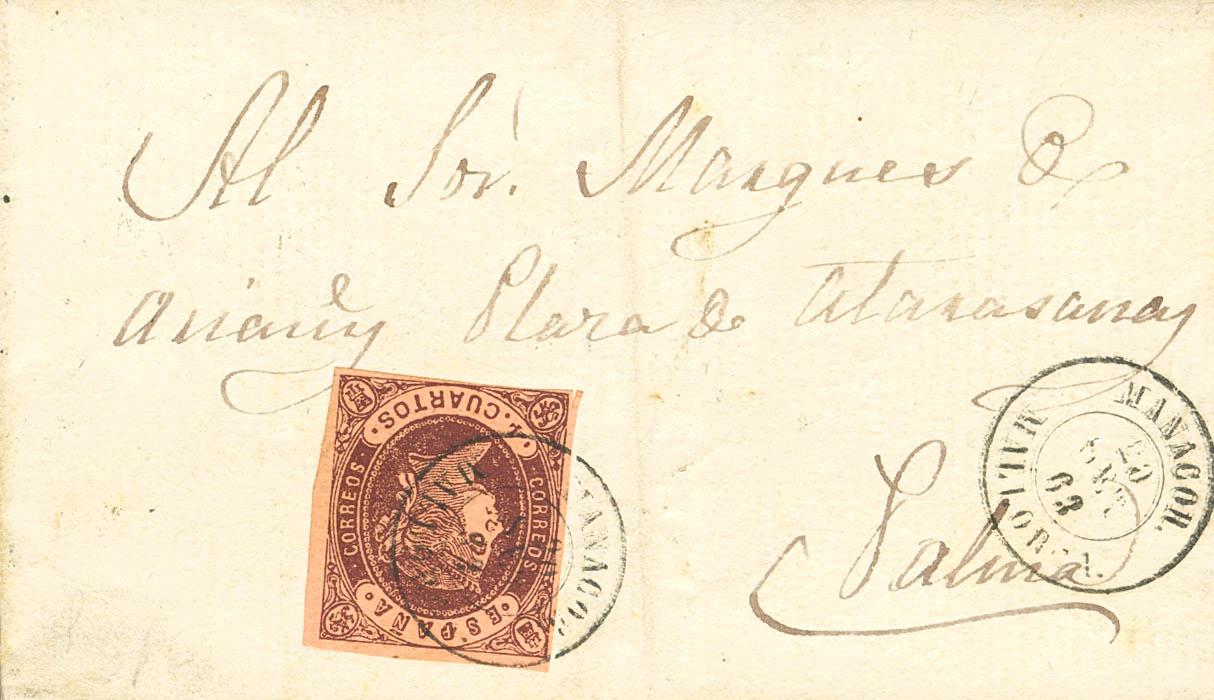 Al Sór. Marques de
Ariañy Plaza de Atarasanas
Palma
4 CUARTOS.
CORREOS
CORREOS
ESPAÑA
MANACOR
MANACOR.
MALLORCA.
63